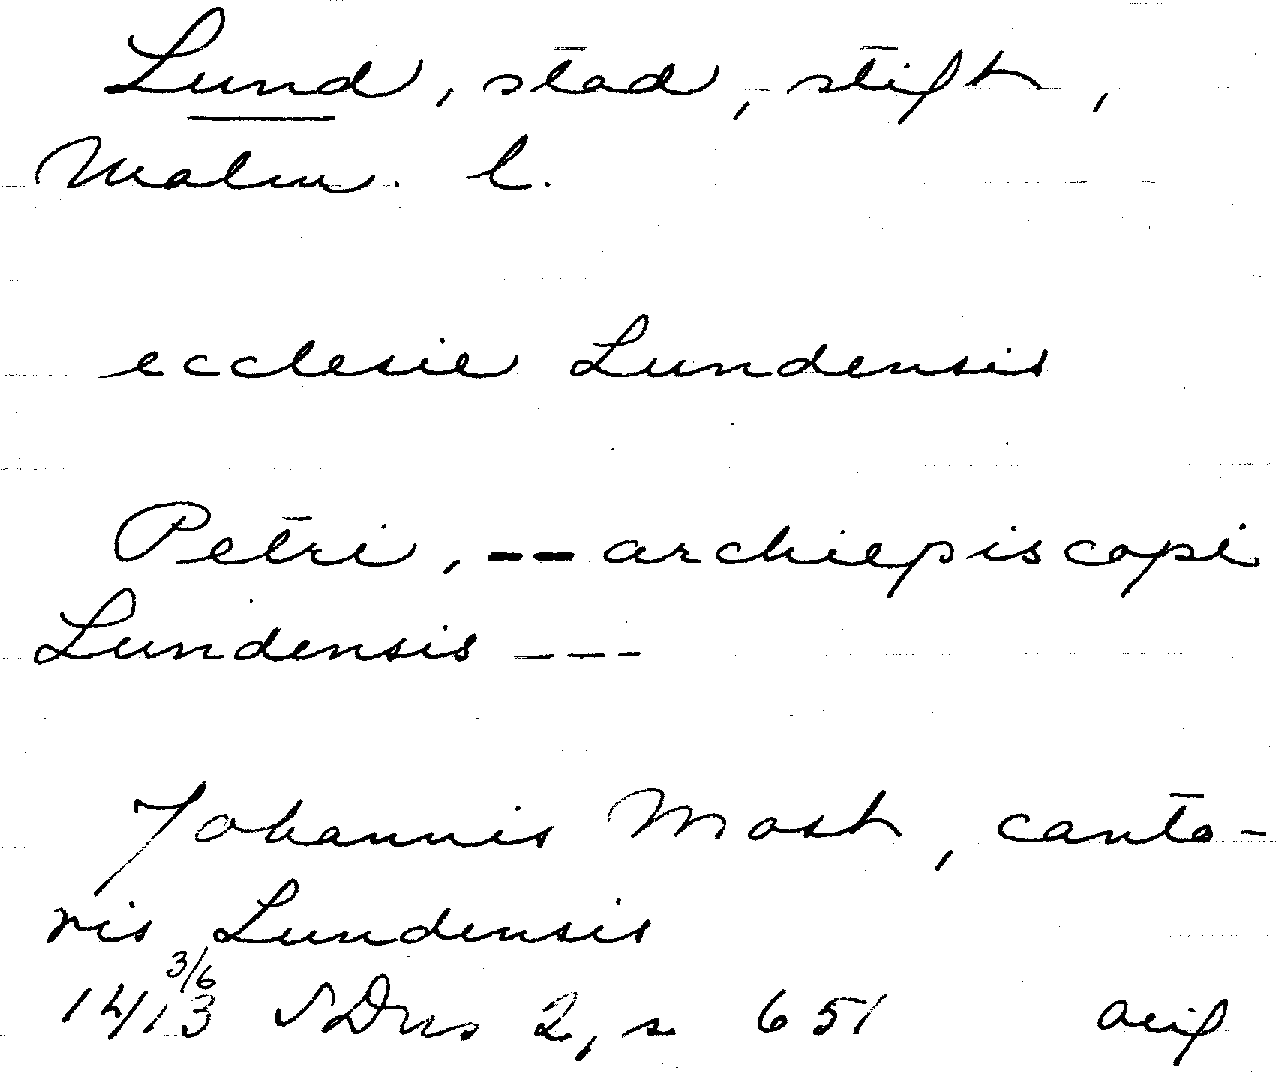 Lund, stad, stift,
Malm. l.
ecclesie Lundensis
Petri, -- archiepiscopi
Lundensis ---
Johannis Mast, canto-
ris Lundensis
1413 3/6 SDns 2, s 651 avif